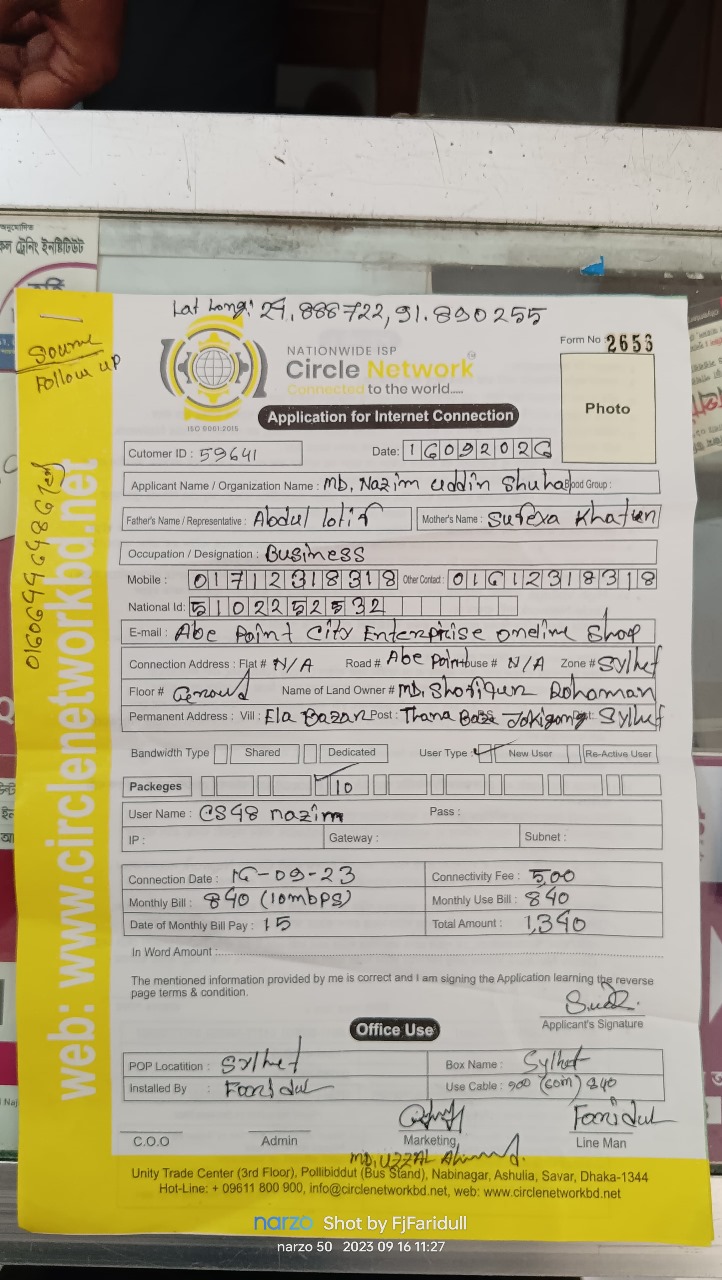 কল ট্রেনিং ইনষ্টিটিউট
Lat Long: 24.888722,91.890255
Source
Follow up
NATIONWIDE ISP
Circle Network
Connected to the world.....
ISO 9001:2015
Form No 2653
Photo
Application for Internet Connection
Cutomer ID : 59641
Date: 16092023
Applicant Name / Organization Name : MD, Nazim uddin Shuhab
Blood Group :
Father's Name / Representative : Abdul lotif
Mother's Name : Sufexa Khatun
Occupation / Designation : Business
Mobile : 01712318318 Other Contact : 01612318318
National Id: 5102252532
E-mail : Abe Point City Enterprise oneline Shop
Connection Address : Flat # N/A Road # Abe Point House # N/A Zone # Sylhet
Floor # Name of Land Owner # MD, Rohoman
Permanent Address : Vill : Ela Bazar Post : Thana Sylhet
Bandwidth Type Shared Dedicated User Type : New User Re-Active User
Packeges 10
User Name : CS48 nazim Pass :
IP : Gateway : Subnet :
Connection Date : 16-09-23 Connectivity Fee : 500
Monthly Bill : 840 (10mbps) Monthly Use Bill : 840
Date of Monthly Bill Pay : 15 Total Amount : 1,340
In Word Amount :
The mentioned information provided by me is correct and I am signing the Application learning the reverse
page terms & condition.
Applicant's Signature
Office Use
POP Locatition : Sylhet Box Name : Sylhet
Installed By : Faridul Use Cable : 900 840
Faridul
C.O.O Admin Marketing Line Man
MD, UZZAL Ahmed.
Unity Trade Center (3rd Floor), Pollibiddut (Bus Stand), Nabinagar, Ashulia, Savar, Dhaka-1344
Hot-Line: + 09611 800 900, info@circlenetworkbd.net, web: www.circlenetworkbd.net
web: www.circlenetworkbd.net
narzo Shot by FjFaridull
narzo 50 2023 09 16 11:27